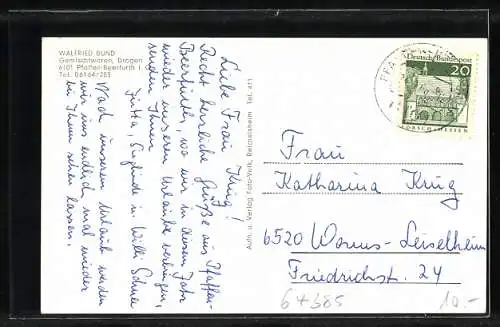 WALFRIED BUND
Gemischtwaren, Drogen
6101 Pfaffen-Beerfurth
Tel. 06164/253
Liebe Frau Krug!
Recht herzliche Grüße aus Pfaffen-
Beerfurth, wo wir in diesem Jahr
wieder unseren Urlaub verbringen,
senden Ihnen
Jutta, Sieglinde u. Willi
Nach unserem Urlaub werden
wir uns endlich mal wieder
bei Ihnen sehen lassen.
Aufn. u. Verlag Foto-Volk, Reichelsheim Tel. 411
Deutsche Bundespost
20
LORSCH/HESSEN
Frau
Katharina Krug
6520 Worms-Leiselheim
Friedrichst. 24
6+385
10.-